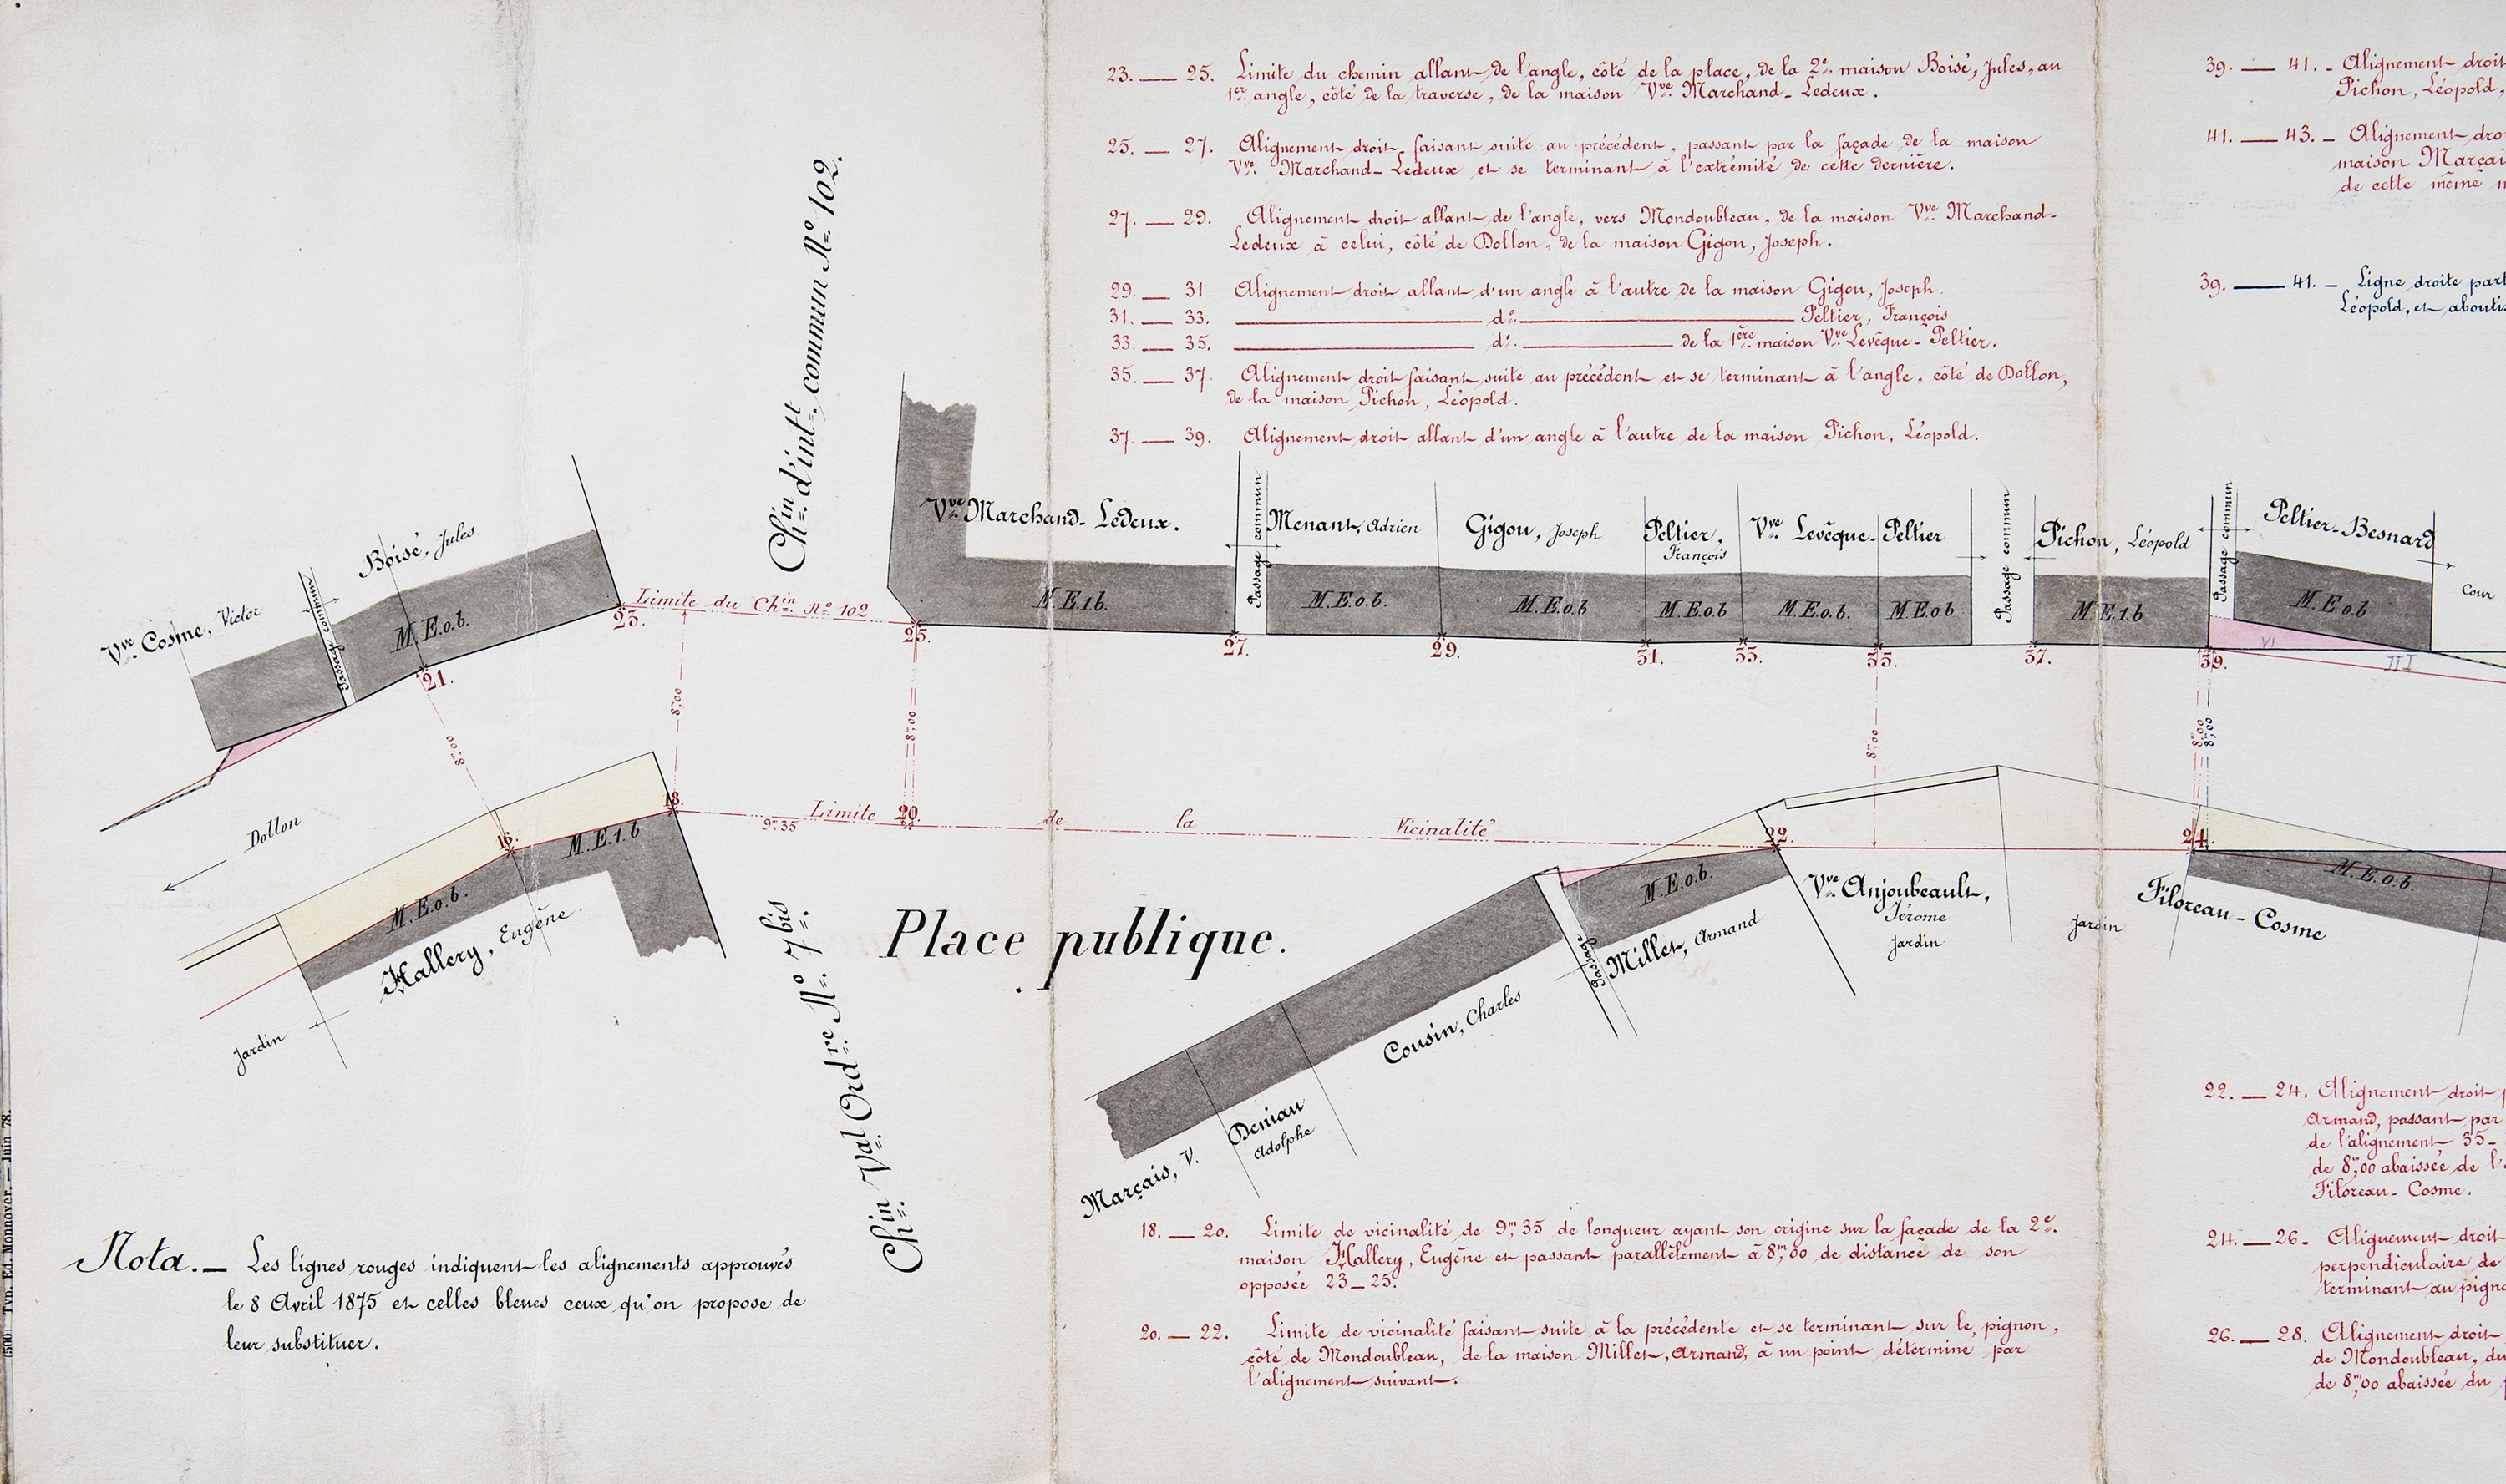 23. — 25. Limite du chemin allant de l'angle, côté de la place, de la 2e. maison Boisé, Jules, au
1er angle, côté de la traverse, de la maison Vve. Marchand-Ledeux.
25. — 27. Alignement droit faisant suite au précédent, passant par la façade de la maison
Vve. Marchand-Ledeux et se terminant à l'extrémité de cette dernière.
27. — 29. Alignement droit allant de l'angle, vers Mondoubleau, de la maison Vve. Marchand-
Ledeux à celui, côté de Dollon, de la maison Gigou, Joseph.
29. — 31. Alignement droit allant d'un angle à l'autre de la maison Gigou, Joseph.
31. — 33. — d°. — Peltier, François
33. — 35. — d°. — de la 1ère maison Vve. Levêque-Peltier.
35. — 37. Alignement droit faisant suite au précédent et se terminant à l'angle, côté de Dollon,
de la maison Pichon, Léopold.
37. — 39. Alignement droit allant d'un angle à l'autre de la maison Pichon, Léopold.
39. — 41. - Alignement droit
Pichon, Léopold,
41. — 43. - Alignement dro
maison Marçai
de cette même m
39. — 41. - Ligne droite part
Léopold, et abouti
Chin. d'intt. commun N° 102.
Vve. Cosme, Victor
Passage commun
Boisé, Jules.
M.E.o.b.
21.
23.
Limite du Chin. N° 102
25.
Vve. Marchand-Ledeux.
M.E.1.b.
27.
Passage commun
Menant, Adrien
M.E.o.b.
29.
Gigou, Joseph
M.E.o.b
31.
Peltier,
François
M.E.o.b
33.
Vve. Levêque-Peltier
M.E.o.b.
35.
M.E.o.b
Passage commun
37.
Pichon, Léopold
M.E.1.b
39.
Passage commun
Peltier-Besnard
M.E.o.b
Cour
VI
III
8m,00
8m,00
8m,00
8m,00
8m,00
8m,00
Dollon
16.
M.E.1.b
18.
9m,35
Limite
20.
de
la
Vicinalité
22.
24.
M.E.o.b.
Hallery, Eugène.
Jardin
Chin. Val Ordre. N° 7bis.
Place publique.
Marçais, V.
Deniau
Adolphe
Cousin, Charles
Passage
M.E.o.b.
Millet, Armand
Vve. Anjoubeault,
Jérome
Jardin
Jardin
M.E.o.b.
Filoreau-Cosme
Nota. — Les lignes rouges indiquent les alignements approuvés
le 8 Avril 1875 et celles bleues ceux qu'on propose de
leur substituer.
18. — 20. Limite de vicinalité de 9m,35 de longueur ayant son origine sur la façade de la 2e.
maison Hallery, Eugène et passant parallèlement à 8m,00 de distance de son
opposée 23_25.
20. — 22. Limite de vicinalité faisant suite à la précédente et se terminant sur le pignon,
côté de Mondoubleau, de la maison Millet, Armand, à un point déterminé par
l'alignement suivant.
22. — 24. Alignement droit p
Armand, passant par
de l'alignement 35-
de 8m,00 abaissée de l'
Filoreau-Cosme.
24. — 26. Alignement droit
perpendiculaire de
terminant au pigno
26. — 28. Alignement droit
de Mondoubleau, du
de 8m,00 abaissée du p
Typ. Ed. Monnoyer. — Juin 78.